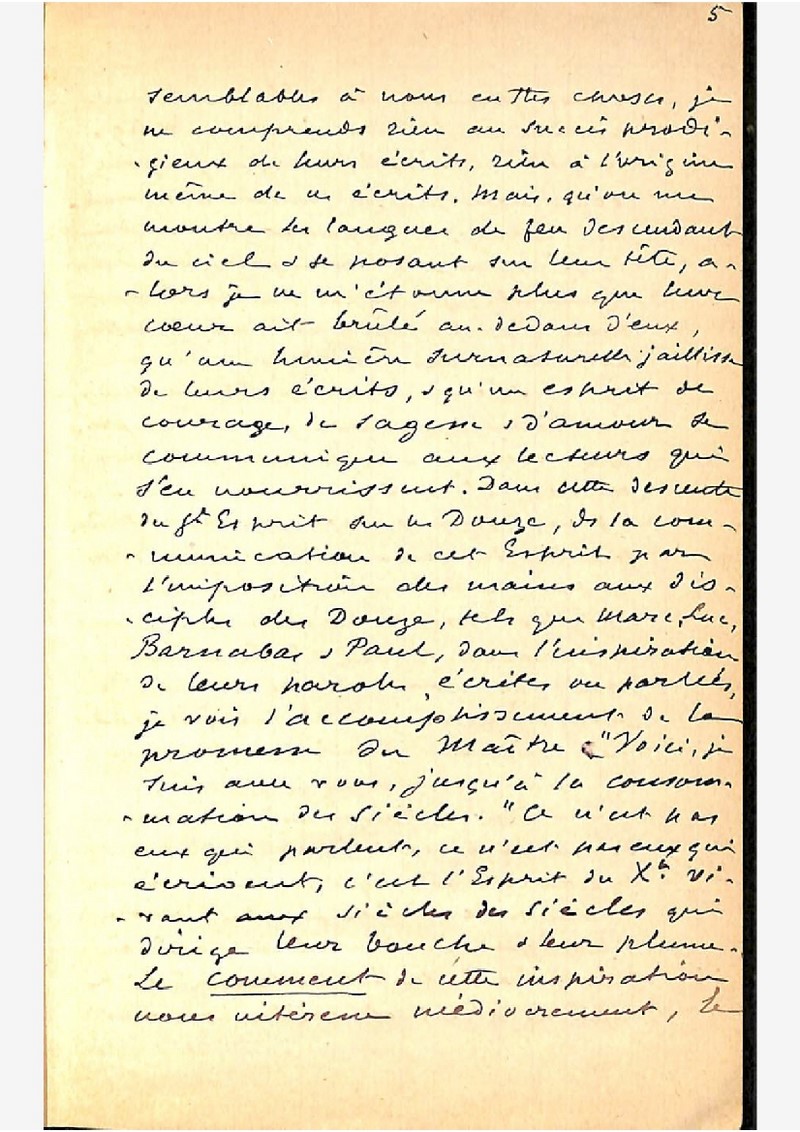 5
semblables à nous en ttes choses, je
ne comprends rien au succès prodi-
-gieux de leurs écrits, rien à l'origine
même de ces écrits. Mais, qu'on me
montre les langues de feu descendant
du ciel & se posant sur leur tête, a-
-lors je ne m'étonne plus que leur
cœur ait brûlé au-dedans d'eux,
qu'une lumière surnaturelle jaillisse
de leurs écrits, & qu'un esprit de
courage, de sagesse & d'amour se
communique aux lecteurs qui
s'en nourrissent. Dans cette descente
du St Esprit sur les Douze, ds la com-
-munication de cet Esprit par
l'imposition des mains aux dis-
-ciples des Douze, tels que Marc, Luc,
Barnabas & Paul, dans l'inspiration
de leurs paroles, écrites ou parlées,
je vois l'accomplissement de la
promesse du Maître "Voici, je
suis avec vous, jusqu'à la consom-
-mation des siècles." Ce n'est pas
eux qui parlent, ce n'est pas eux qui
écrivent, c'est l'Esprit du Xt vi-
-vant aux siècles des siècles qui
dirige leur bouche & leur plume.
Le comment de cette inspiration
nous intéresse médiocrement, le